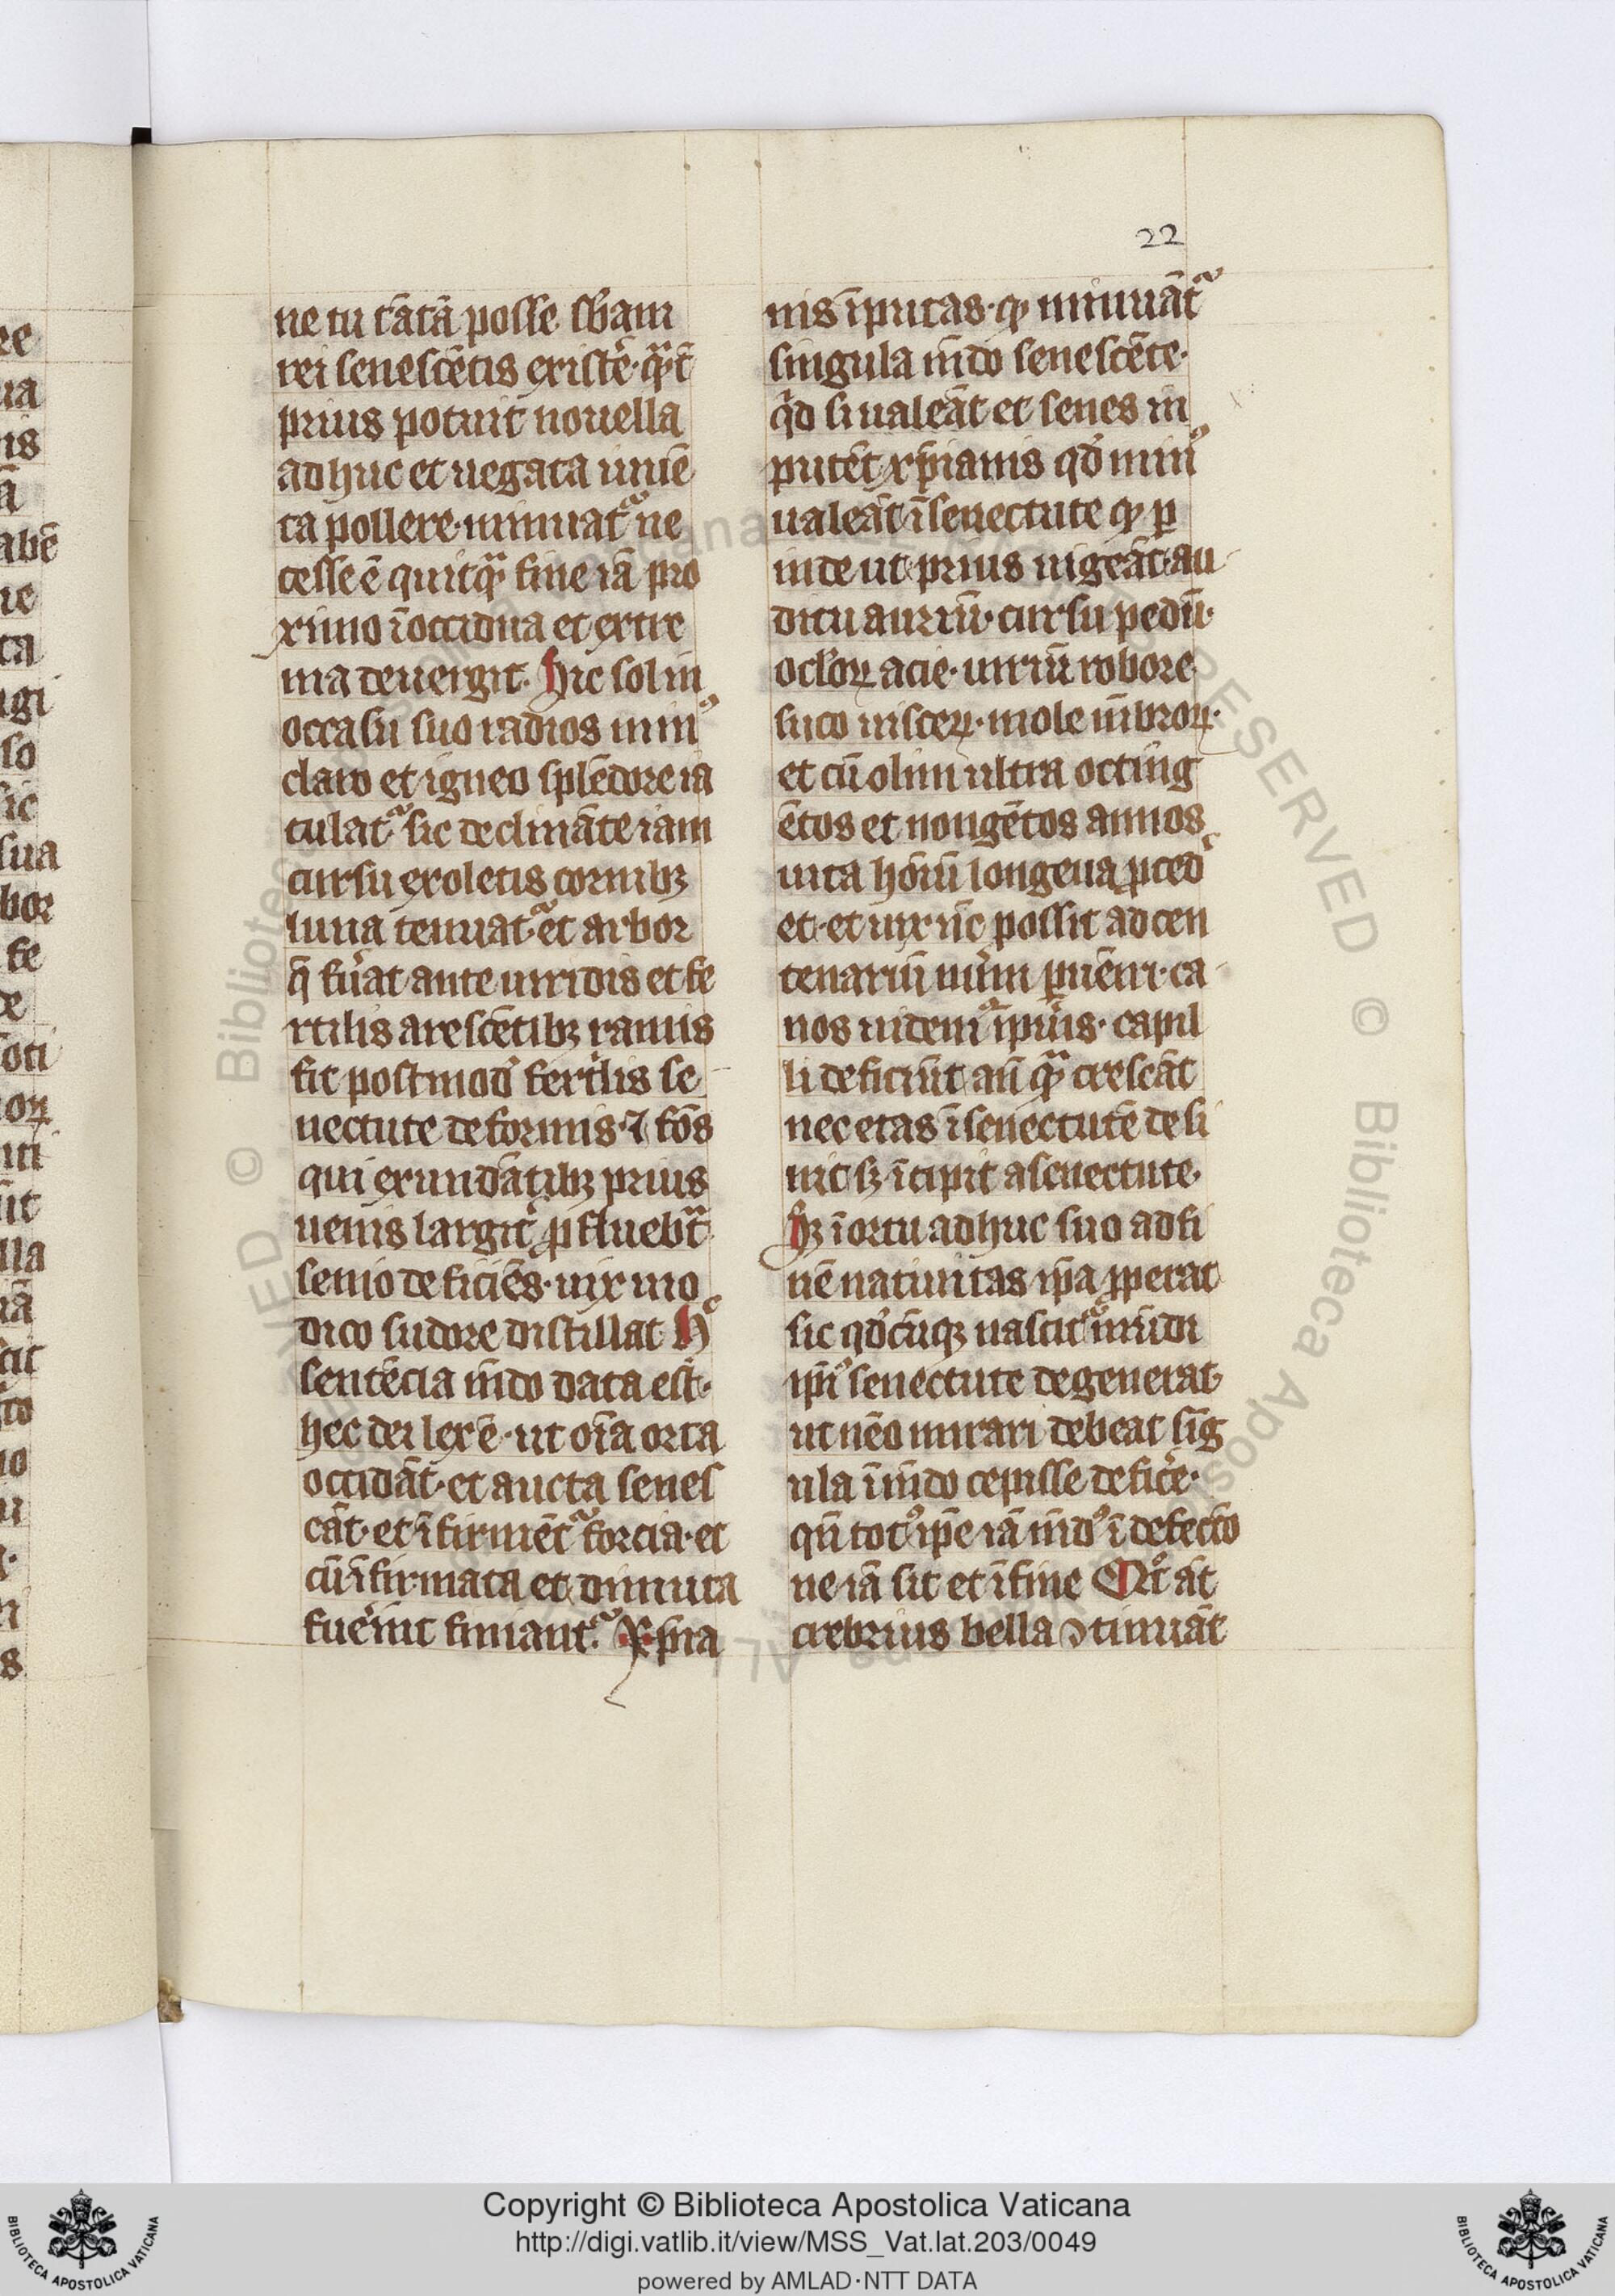 22
ne tu tātā posse sb̄am
rei senescētis existe᷑·qᷓt̄
prius potuit nouella
adhuc et uegata iuuē
ta pollere·minuatᷓ ne
cesse ē quitqᷓ fine iā pro
ximo ī occidua et extre
ma deuergit. Hic sol in
occasu suo radios min᷒
claro et igneo splēdore ia
culatᷓ sic declināte iam
cursu exoletis cornibꝫ
luna tenuatᷓ et arbor
q̄ fu᷑at ante uiridis et fe
rtilis arescētibꝫ ramis
fit postmod᷒ sterilis se
nectute deformis·⁊ fōs
qui exundātibꝫ prius
uenis largit᷑ ꝓfluebᷓt
senio deficiēs·uix mo
dico sudore distillat Hͨ
sentēcia mīdo data est·
hec dei lex ē·ut oīa orta
occidāt·et aucta senes
cāt·et īfirmētᷓ forcia·et
cū īfirmata et diminuta
fue᷑int finiantᷓ. Xp̄ia
nis īputas·ꝙ minuātᷓ
singula mīdo senescēte·
qͥd si ualeāt et senes in
putēt xp̄ianis qd᷒ min᷒
ualeāt ī senectute ꝙ ꝑ
inde ut prius uigeāt·au
ditu auriū·cursu pedū·
oc̄loꝝ acie·uiriū robore
suco uisceꝝ·mole mēbroꝝ·
et cū olim ultra octing
ētos et nongētos annos
uita hōīū longeua ꝓced᷑
et·et uix nc̄ possit ad cen
tenariū num᷑ ꝑuēiri·ca
nos uidemᷓ ī pu᷑is·capil
li deficiūt an̄ qᷓ crescāt
nec etas ī senectutē desi
nit sꝫ īcipit a senectute·
Hꝫ ī ortu adhuc suo ad fi
nē natiuitas ip̄a ꝓperat
sic qd᷒cūqꝫ nascitᷓ mūdi
ip̄i᷒ senectute degenerat
ut nēo mirari debeat sīg
ula ī mīdo cepisse defice᷑·
qn̄ tot᷒ ip̄e iā mīd᷒ ī defectio
ne iā sit et ī fine Qͦt āt
crebrius bella ꝯtinuāt
Copyright © Biblioteca Apostolica Vaticana
http://digi.vatlib.it/view/MSS_Vat.lat.203/0049
powered by AMLAD·NTT DATA